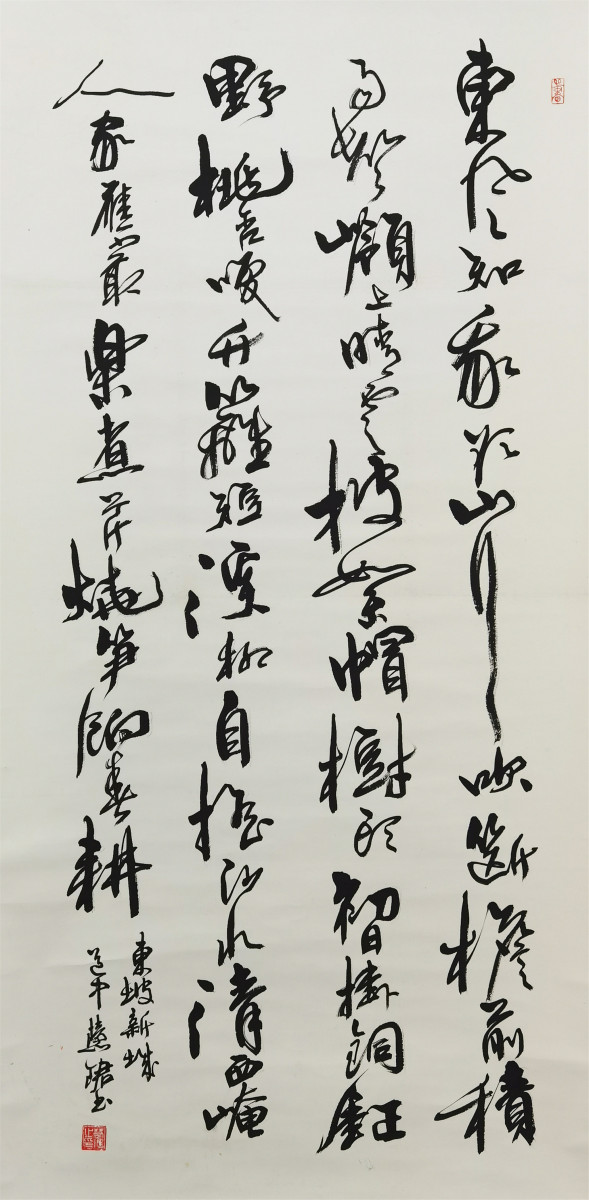 東风知我欲山行吹斷檐前積
雨聲嶺上晴雲披絮帽樹頭初日掛銅鉦
野桃含咲竹籬短溪柳自搖沙水清西崦
人家應最樂煮芹燒笋餉春耕
東坡新城
道中慧珺书